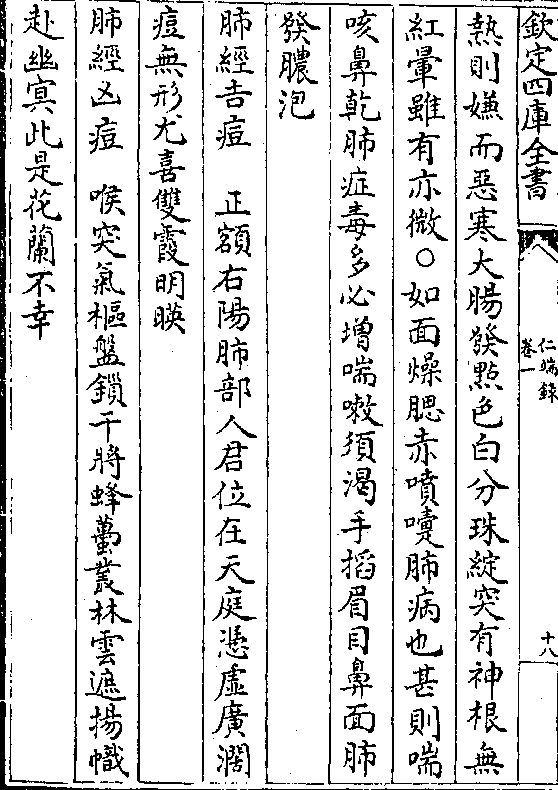 欽定四庫全書
仁端錄
卷一
十八
熱則嫌而惡寒大腸發㸃色白分珠綻突有神根無
紅暈雖有亦微○如面燥腮赤噴嚏肺病也甚則喘
咳鼻乾肺症毒多必增喘嗽須渴手搯眉目鼻面肺
發膿泡
肺經吉痘　正額右陽肺部人君位在天庭憑虛廣濶
痘無形尤喜雙霞明暎
肺經凶痘　喉突氣樞盤鎖干將蜂蠆叢林雲遮揚幟
赴幽冥此是花蘭不幸